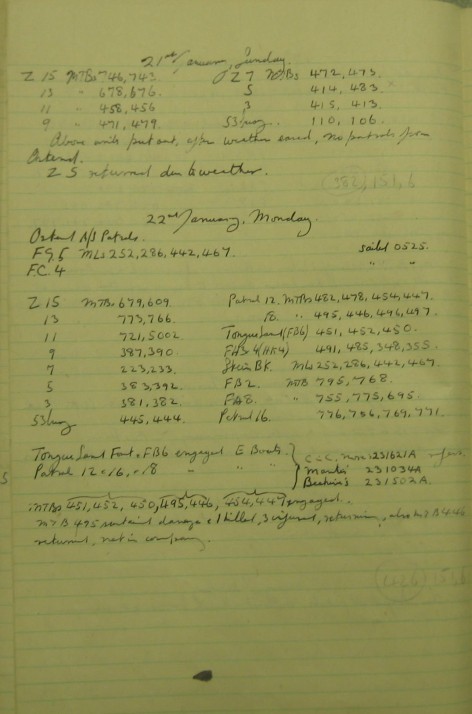 21st January, Sunday.
Z 15 MTBs 746, 743. Z 7 MTBs 472, 473.
13 " 678, 676. 5 414, 483.
11 " 458, 456 3 415, 413.
9 " 471, 479. 53 buoy. 110, 106.
Above units put out, after weather eased, no patrols from
Ostend.
Z 5 returned due to weather.
(382), 151, 6
22nd January, Monday.
Ostend A/S Patrols.
F9, 5 MLs 252, 286, 442, 467. sailed 0525.
F.C. 4 " "
Z 15 MTBs 679, 609. Patrol 12. MTBs 482, 478, 454, 447.
13 773, 766. 18. " 495, 446, 496, 497.
11 721, 5002. Tongue Sand (FB6) 451, 452, 450.
9 387, 390. 491, 485, 348, 355.
7 223, 233. MLs 252, 286, 442, 467.
5 383, 392. FB2. MTB 795, 768.
3 381, 382. FA8. " 755, 775, 695.
53 buoy 445, 444. Patrol 16. 776, 756, 769, 771.
Tongue Sand Fort, FB6 engaged E Boats. C-in-C, Nore: 231621A refers.
Patrol 12 & 16, & 18 " " " 231034A
231502A.
MTBs 451, 452, 450, 495, 446, 454, 447 engaged.
MTB 495 sustained damage & 1 killed, 3 injured, returning, also MTB 446
returned, not in company.